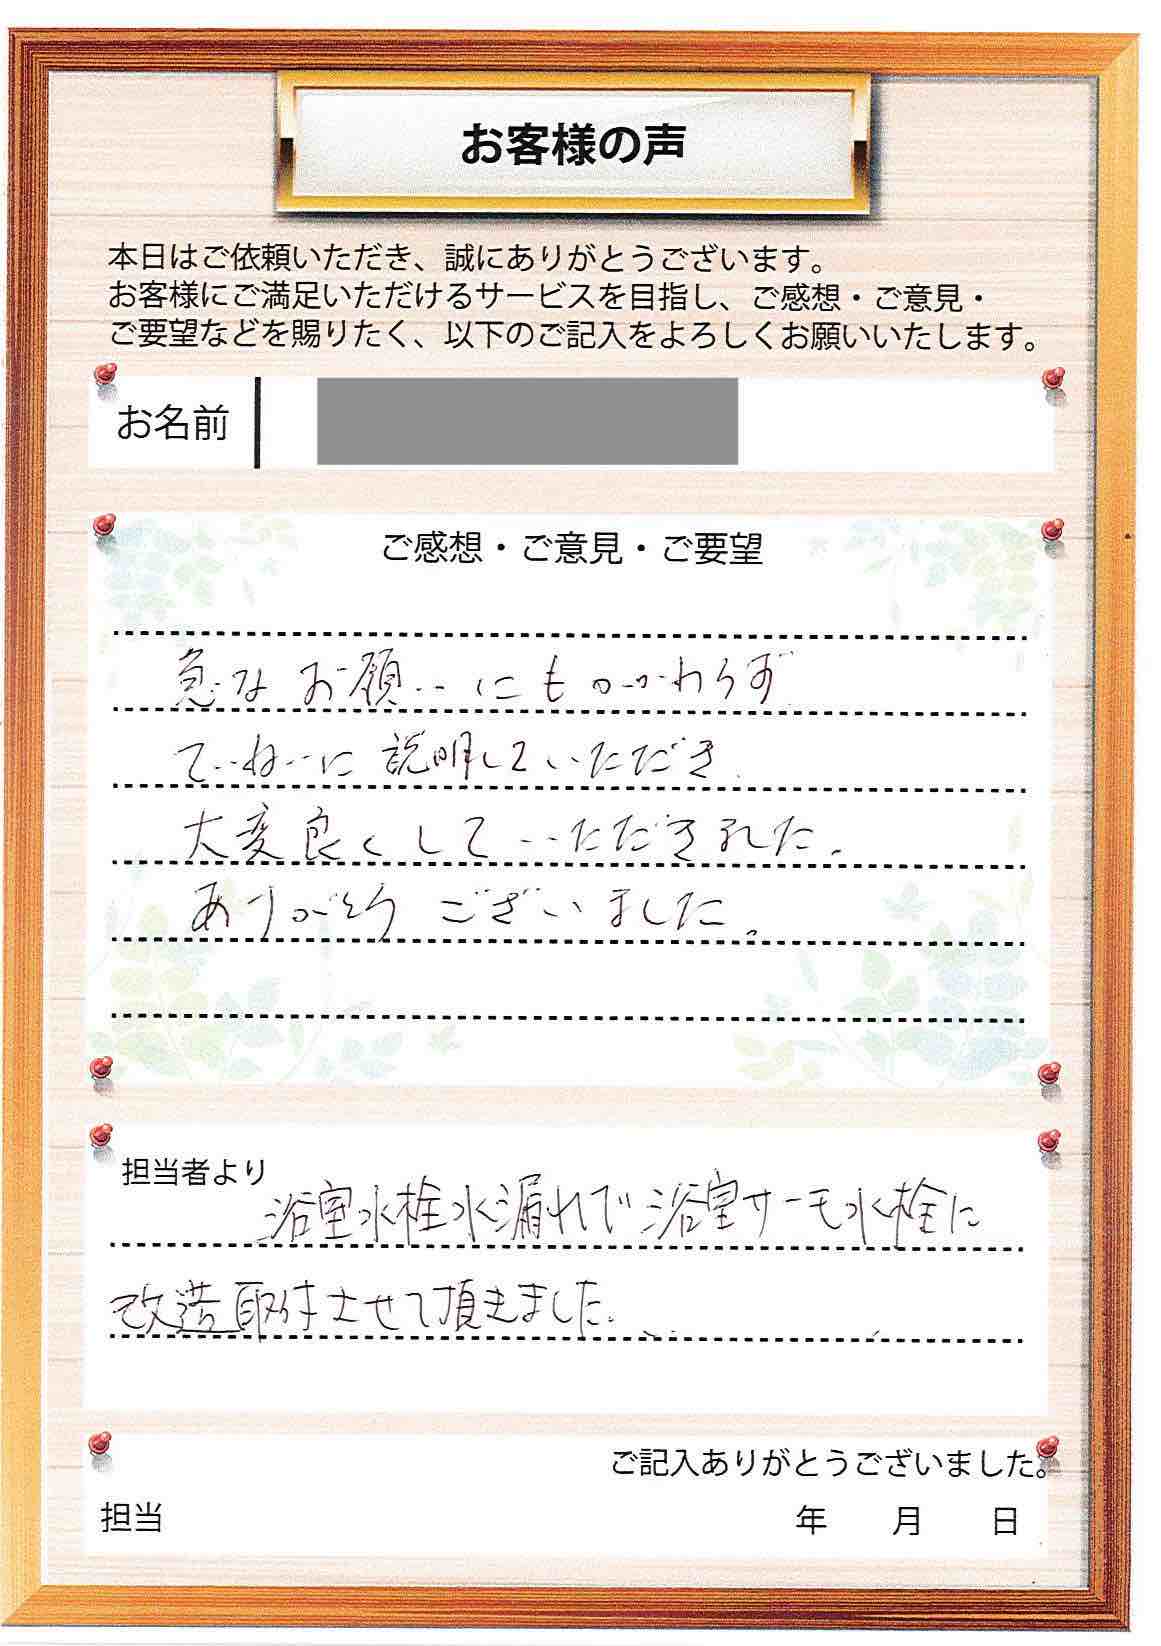 お客様の声
本日はご依頼いただき、誠にありがとうございます。
お客様にご満足いただけるサービスを目指し、ご感想・ご意見・
ご要望などを賜りたく、以下のご記入をよろしくお願いいたします。
お名前
ご感想・ご意見・ご要望
急なお願いにもかかわらず
ていねいに説明していただき
大変良くしていただきました。
ありがとうございました。
担当者より
浴室水栓水漏れで浴室サーモ水栓に
改造取付させて頂きました.
ご記入ありがとうございました。
担当 年 月 日